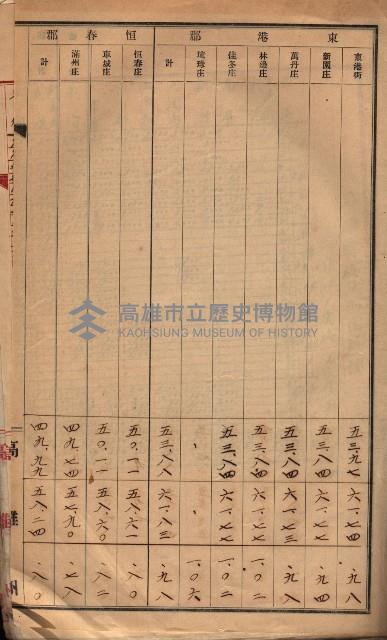 東港郡
東港街 五三、九七 六一、七四 、九八
新園庄 五三、八四 六一、七七 、九四
萬丹庄 五三、八四 六一、七三 、九八
林邊庄 五三、八四 六一、七七 一、〇二
佳冬庄 五三、八四 六一、七七 一、〇二
琉球庄 、 、 一、〇六
計 五三、八八 六一、八三 、九八
恒春郡
恒春庄 五〇、一一 五八、六一 、八〇
車城庄 五〇、一一 五八、六〇 、八二
滿州庄 四九、七四 五七、九〇 、七八
計 四九、九九 五八、二四 、八〇
高雄州
高雄市立歷史博物館
KAOHSIUNG MUSEUM OF HISTORY